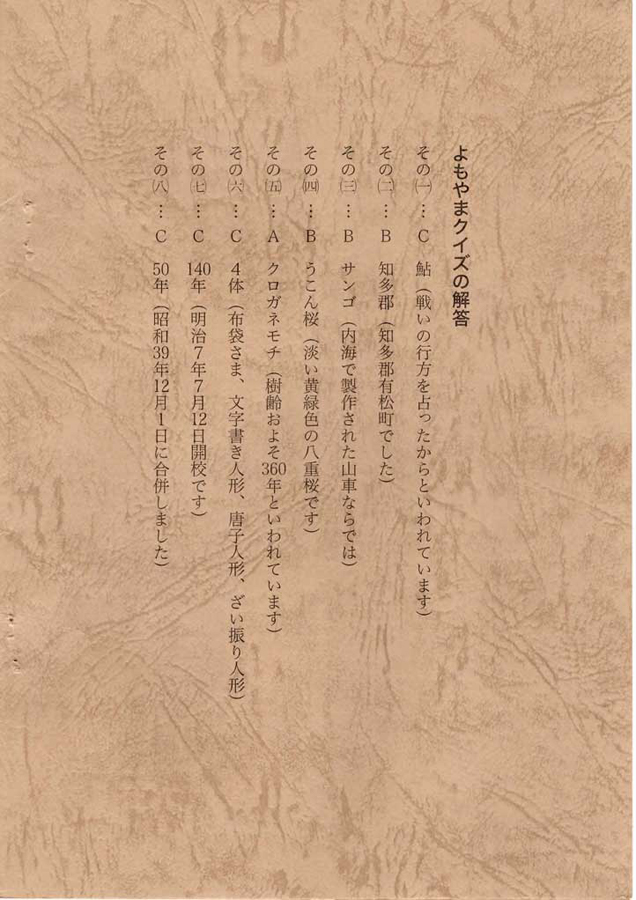 よもやまクイズの解答
その㈠…C 鮎（戦いの行方を占ったからといわれています）
その㈡…B 知多郡（知多郡有松町でした）
その㈢…B サンゴ（内海で製作された山車ならでは）
その㈣…B うこん桜（淡い黄緑色の八重桜です）
その㈤…A クロガネモチ（樹齢およそ360年といわれています）
その㈥…C 4体（布袋さま、文字書き人形、唐子人形、ざい振り人形）
その㈦…C 140年（明治7年7月12日開校です）
その㈧…C 50年（昭和39年12月1日に合併しました）